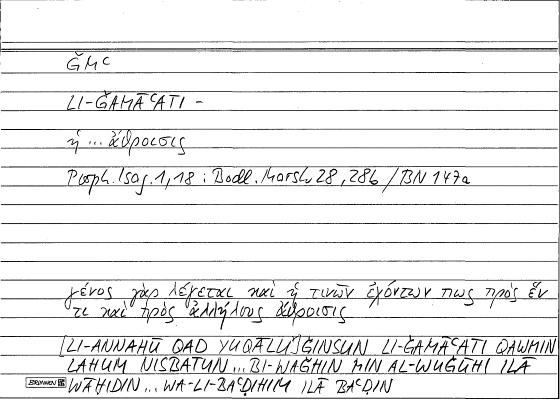 ǦMʿ
LI-ǦAMĀʿATI -
ἡ ... ἄθροισις
Porph. Isag. 1,18 : Bodl. Marsh 28, 28b / BN 147a
γένος γὰρ λέγεται καὶ ἡ τινῶν ἐχόντων πως πρὸς ἕν
τι καὶ πρὸς ἀλλήλους ἄθροισις
[LI-ANNAHŪ QAD YUQĀLU] ǦINSUN LI-ǦAMĀʿATI QAWMIN
LAHUM NISBATUN ... BI-WAǦHIN MIN AL-WUǦŪHI ILĀ
WĀḤIDIN ... WA-LI-BAʿḌIHIM ILĀ BAʿḌIN
BRUNNEN